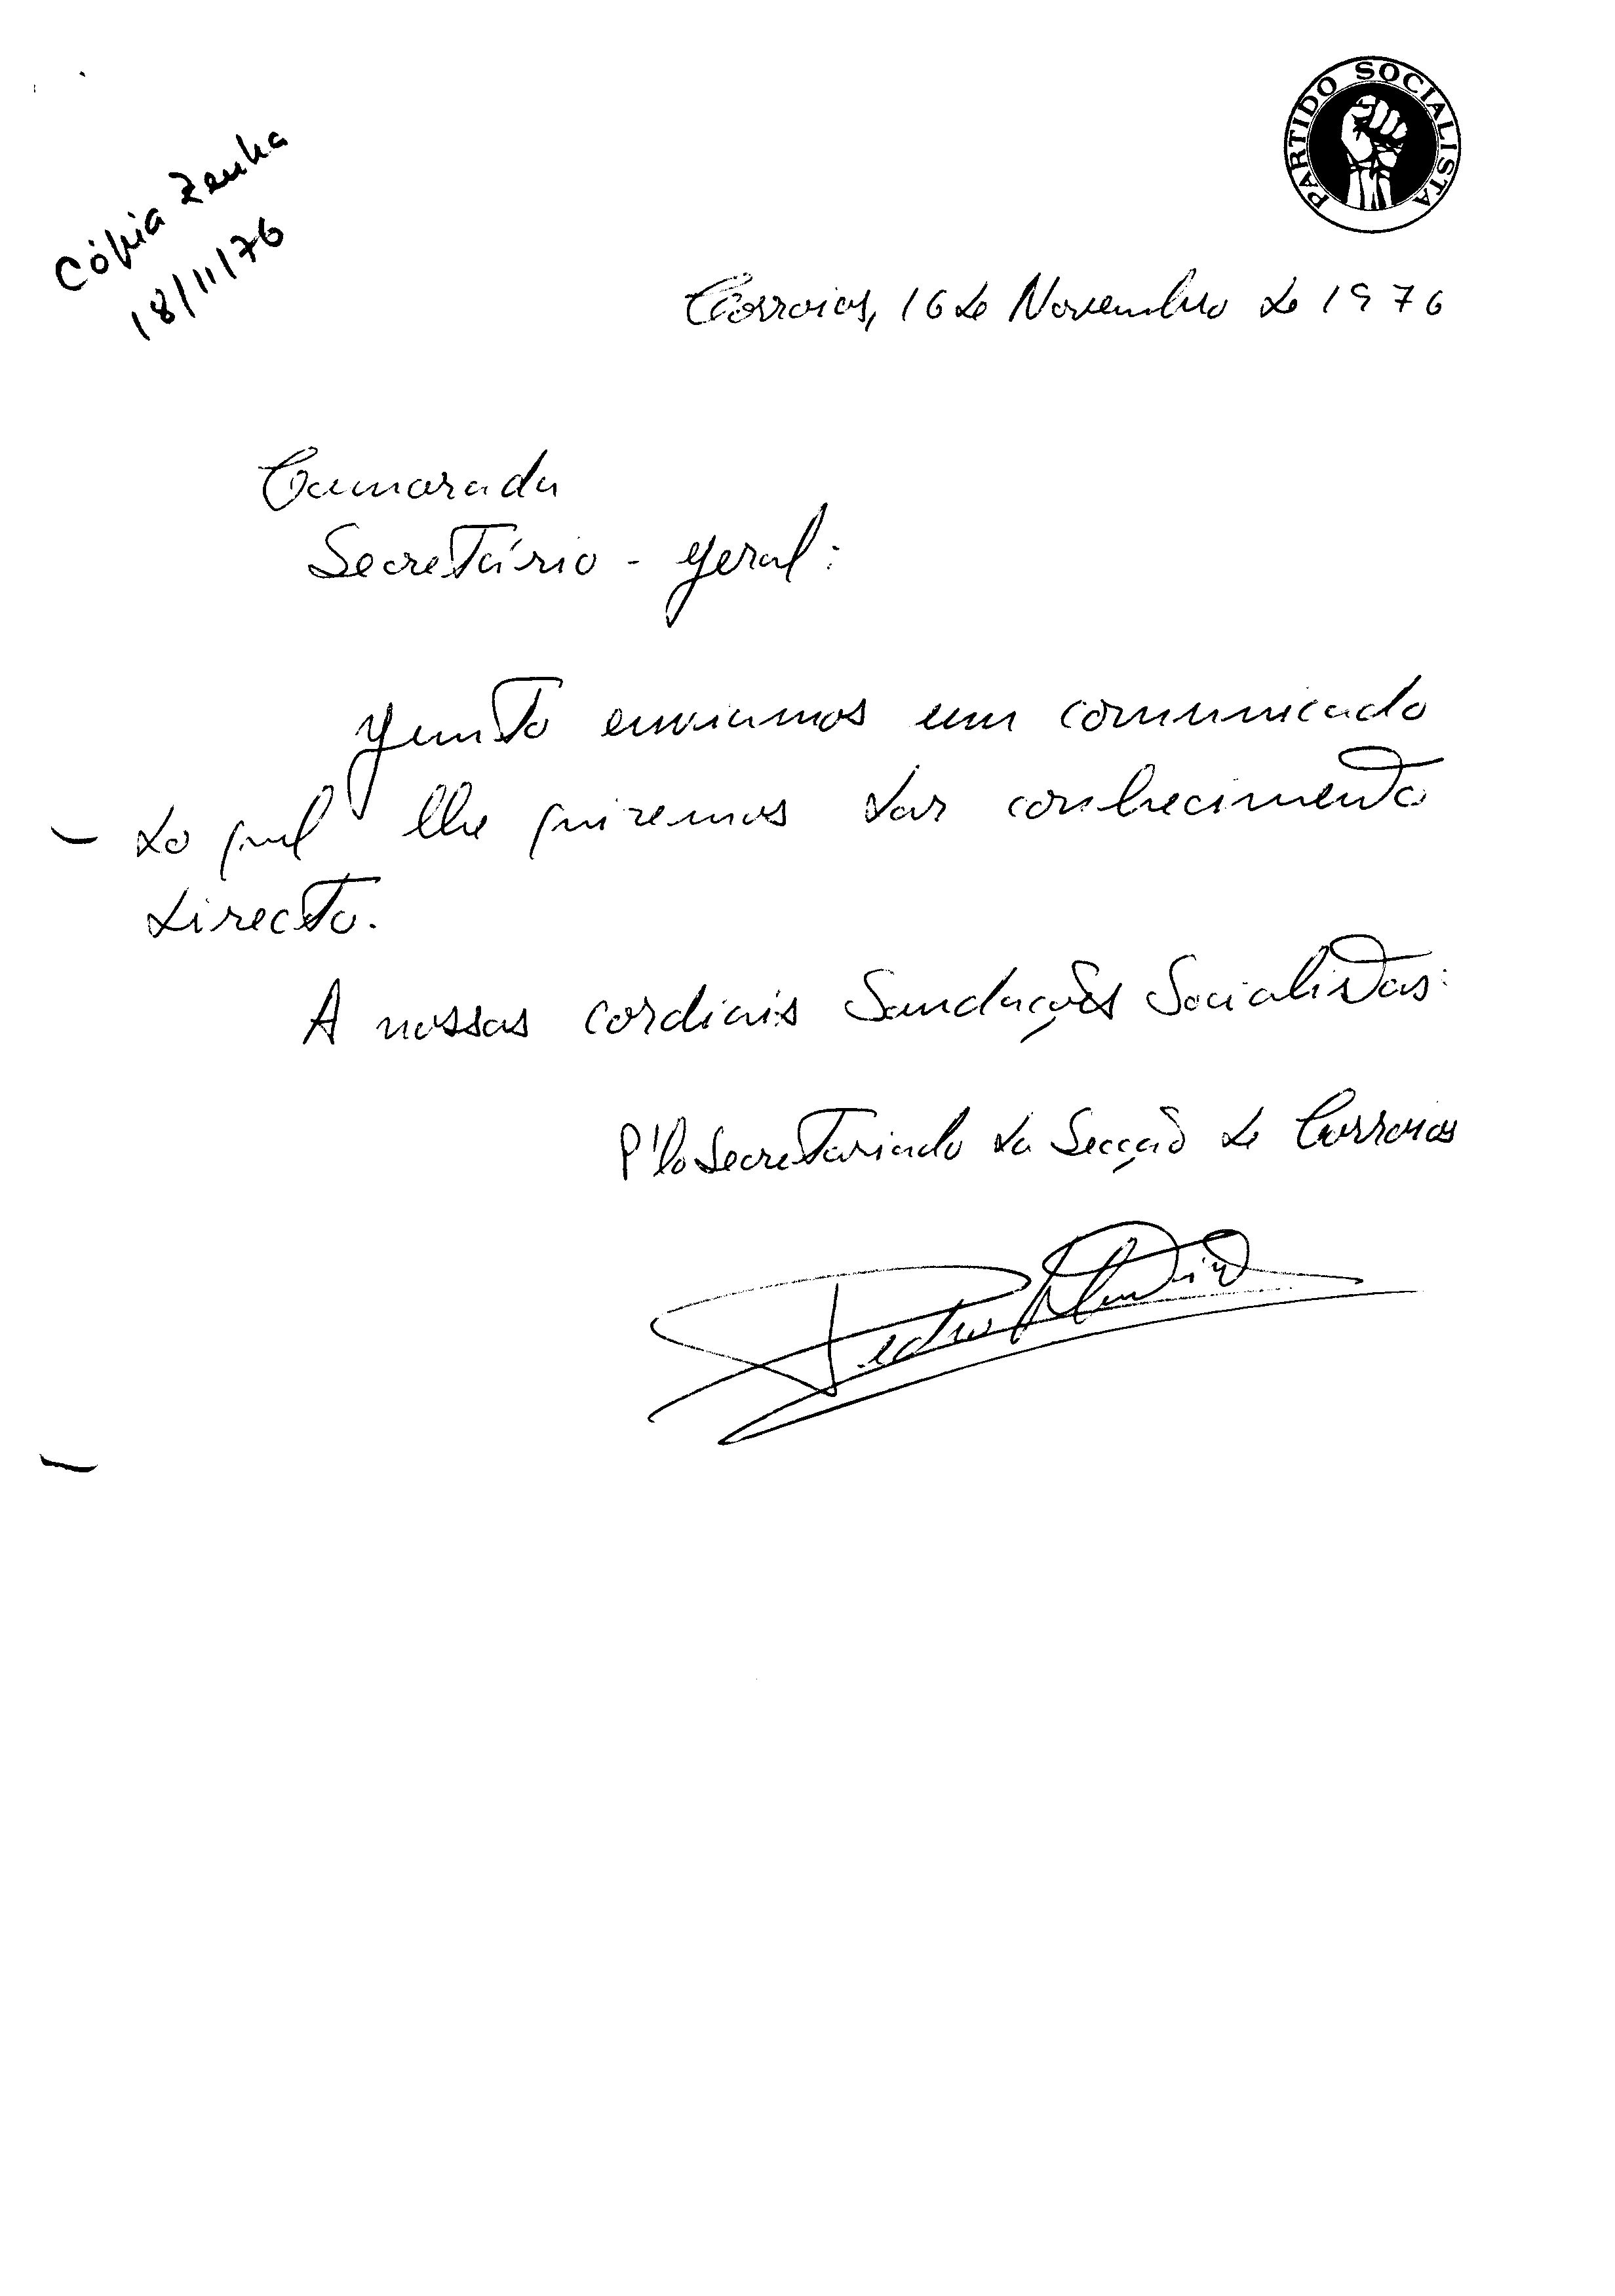 PARTIDO SOCIALISTA
Cópia Zenha
18/11/76
Corroios, 16 de Novembro de 1976
Camarada
Secretário - geral:
Junto enviamos um comunicado
do qual lhe quizemos dar conhecimento
directo.
A nossas cordiais Saudações Socialistas:
P'lo Secretariado da Secção de Corroios
Pedro